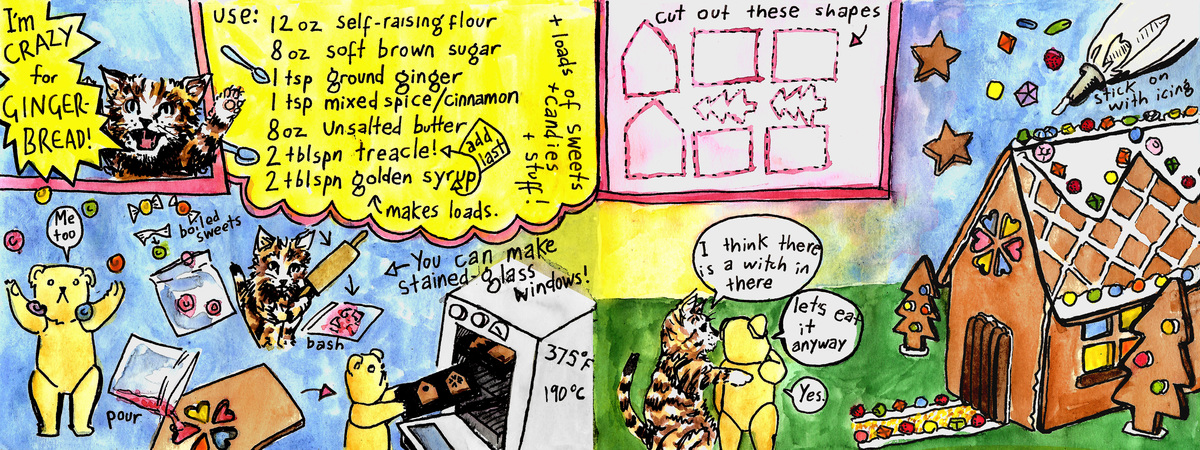 I'm
CRAZY
for
GINGER-
BREAD!
use:
12 oz self-raising flour
8 oz soft brown sugar
1 tsp ground ginger
1 tsp mixed spice/cinnamon
8oz unsalted butter
2 tblspn treacle!
2 tblspn golden syrup
add
last
makes loads.
+ loads of sweets
+ candies
+ stuff!
cut out these shapes
stick on
with icing
Me
too
boiled
sweets
bash
pour
You can make
stained-glass
windows!
375°F
190°C
I think there
is a witch in
there
let's eat
it
anyway
Yes.